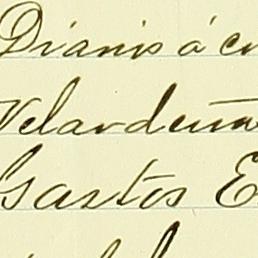 Dianis á cu
Velardeña
Gastos E